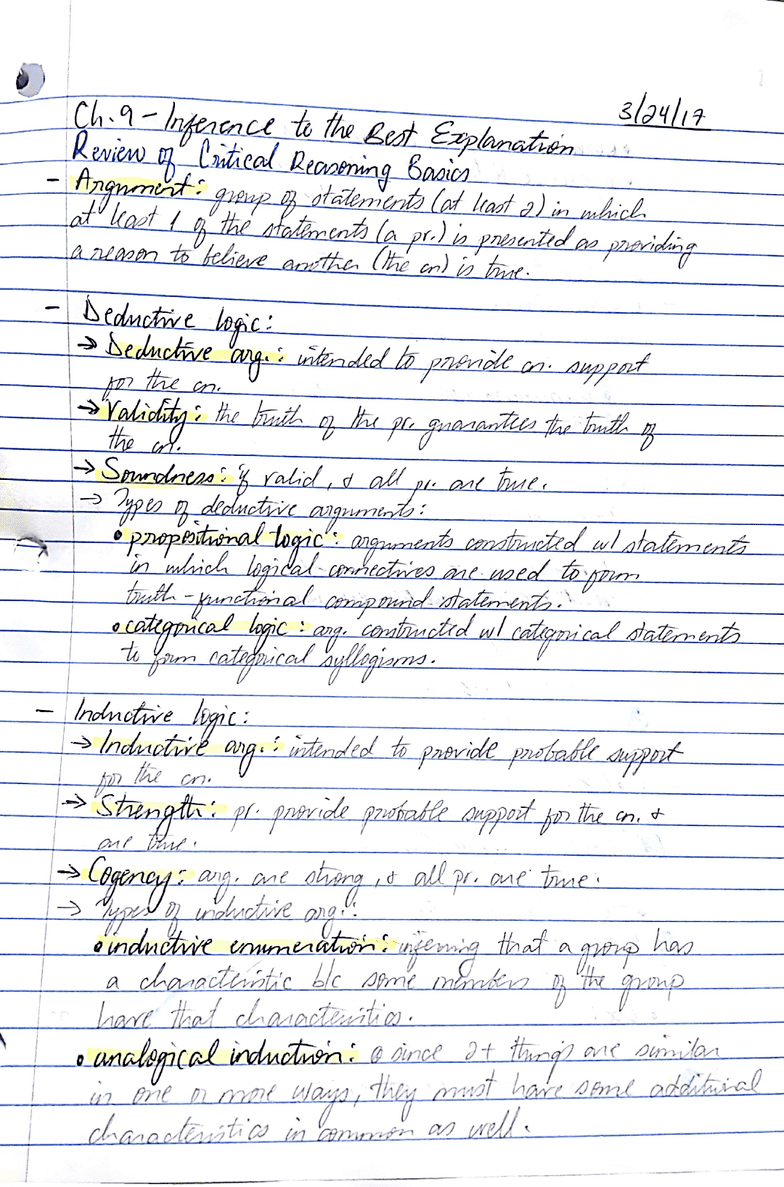 3/24/17
Ch.9 - Inference to the Best Explanation
Review of Critical Reasoning Basics
- Argument: group of statements (at least 2) in which
at least 1 of the statements (a pr.) is presented as providing
a reason to believe another (the cn) is true.
- Deductive logic:
→ Deductive arg.: intended to provide cn. support
for the cn.
→ Validity: the truth of the pr. guarantees the truth of
the cn.
→ Soundness: if valid, & all pr. are true.
→ Types of deductive arguments:
• propositional logic: arguments constructed w/ statements
in which logical connectives are used to form
truth-functional compound statements.
• categorical logic: arg. constructed w/ categorical statements
to form categorical syllogisms.
- Inductive logic:
→ Inductive arg.: intended to provide probable support
for the cn.
→ Strength: pr. provide probable support for the cn. &
are true.
→ Cogency: arg. are strong, & all pr. are true.
→ Types of inductive arg.:
• inductive enumeration: inferring that a group has
a characteristic b/c some members of the group
have that characteristics.
• analogical induction: since 2+ things are similar
in one or more ways, they must have some additional
characteristics in common as well.